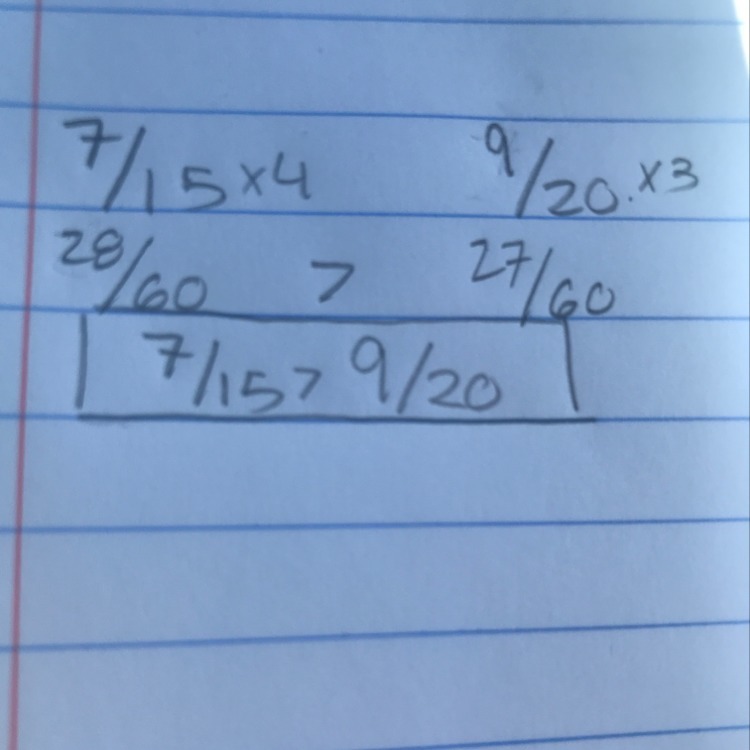 7/15 x4 9/20 . x3
28/60 > 27/60
7/15 > 9/20